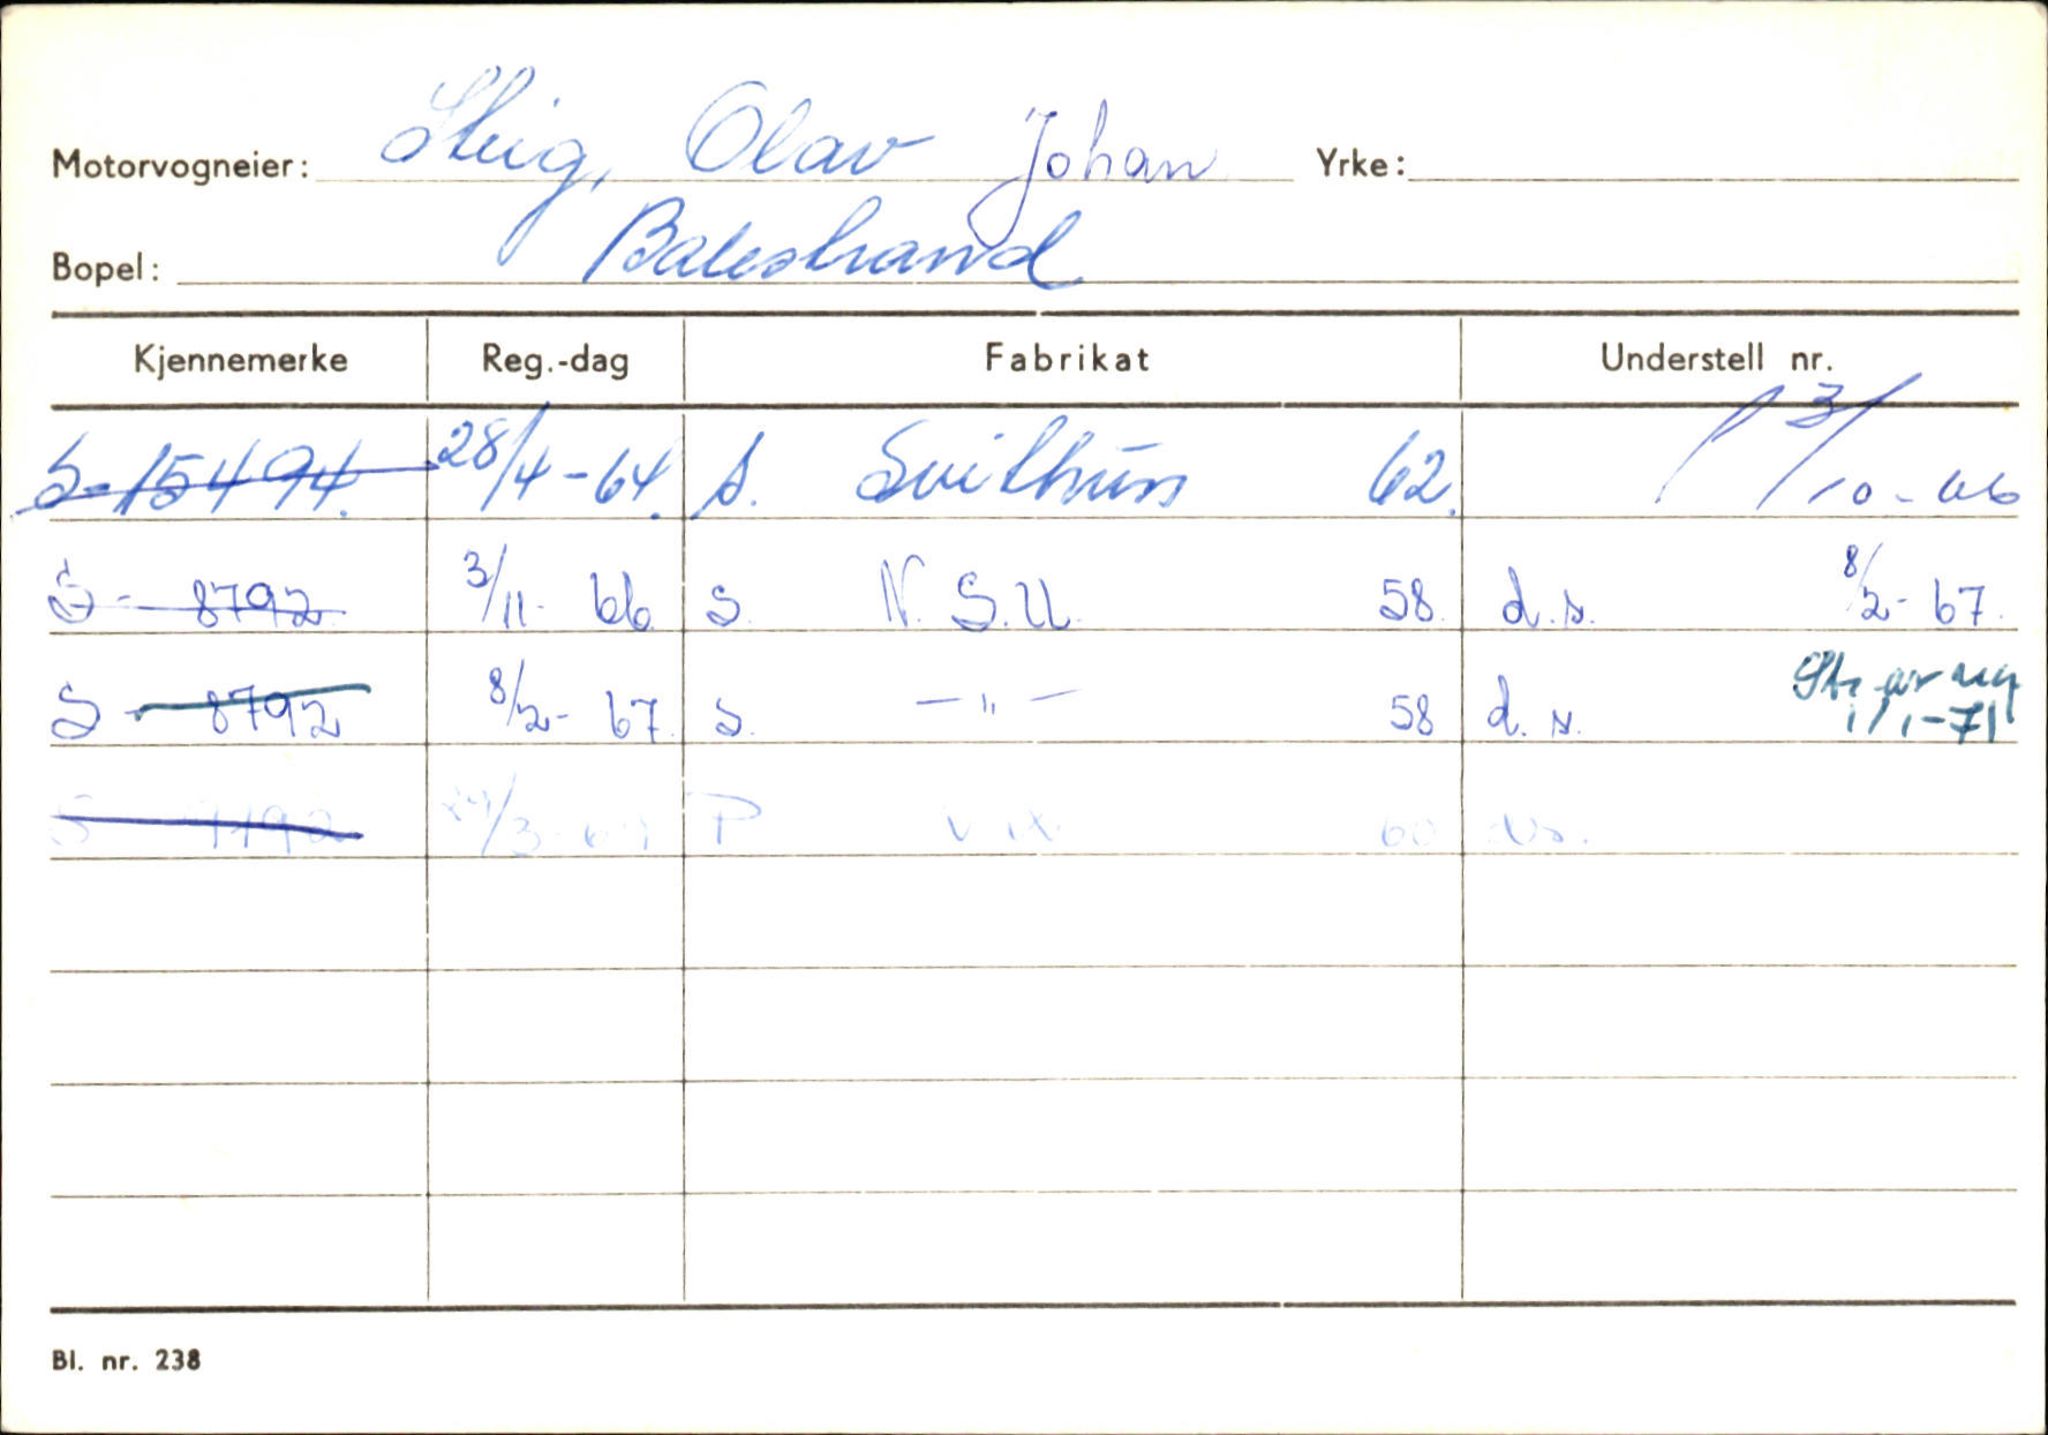 Motorvogneier: Steig, Olav Johan Yrke:
Bopel: Balestrand
Kjennemerke Reg.-dag Fabrikat Understell nr.
S-15494. 28/4-64. s. Svithun 62. 3/10-66
S- 8792 3/11- 66. s. N.S.U. 58. d.s. 8/2- 67.
S- 8792 8/2- 67. s. -"- 58 d.s. Str. av reg
1/1-71
S /3- P 60 ds.
Bl. nr. 238